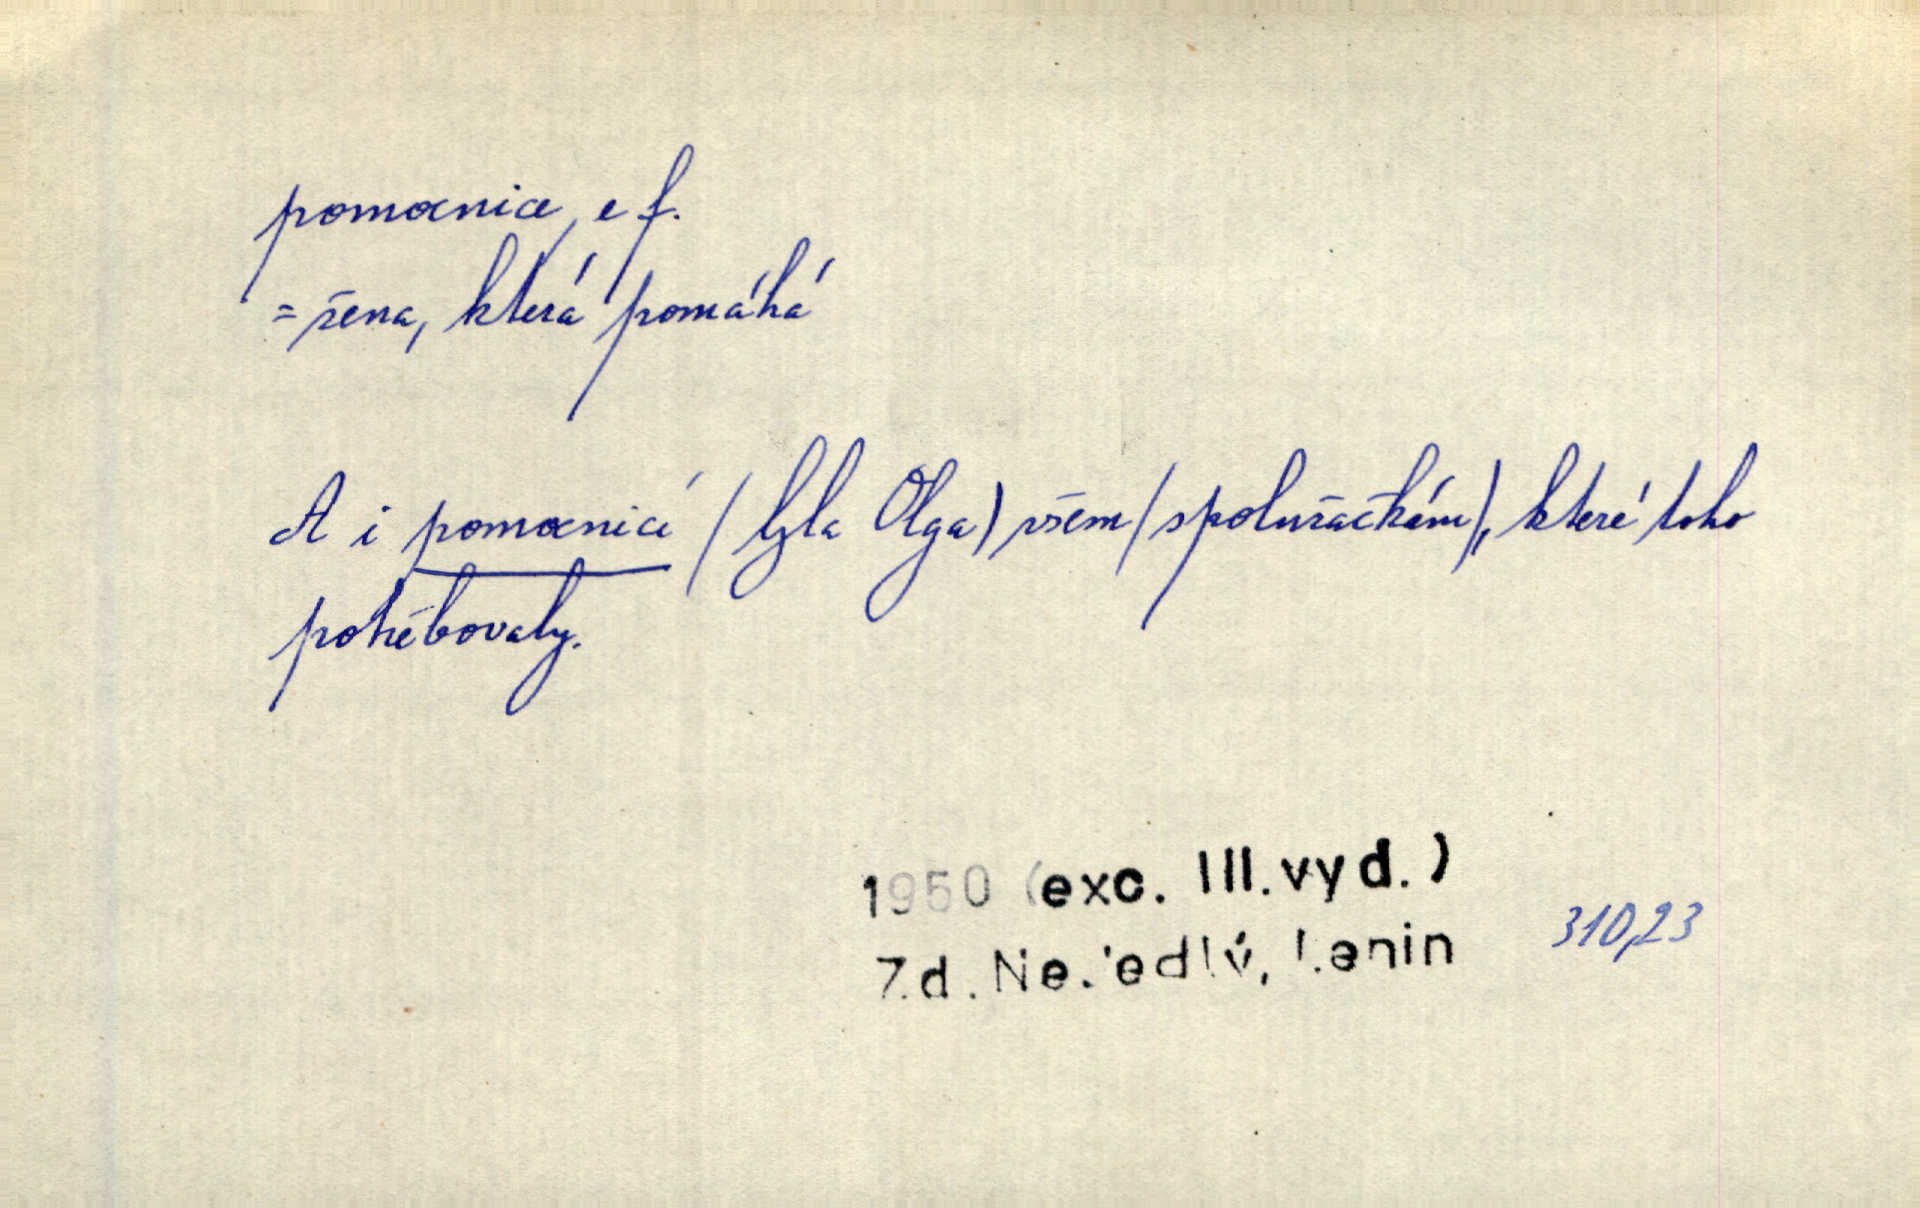 pomocnice, e f.
= žena, která pomáhá
A i pomocnicí (byla Olga) všem (spolužačkám), které toho
potřebovaly.
1950 (exc. III. vyd.)
Zd. Nejedlý, Lenin
310,23